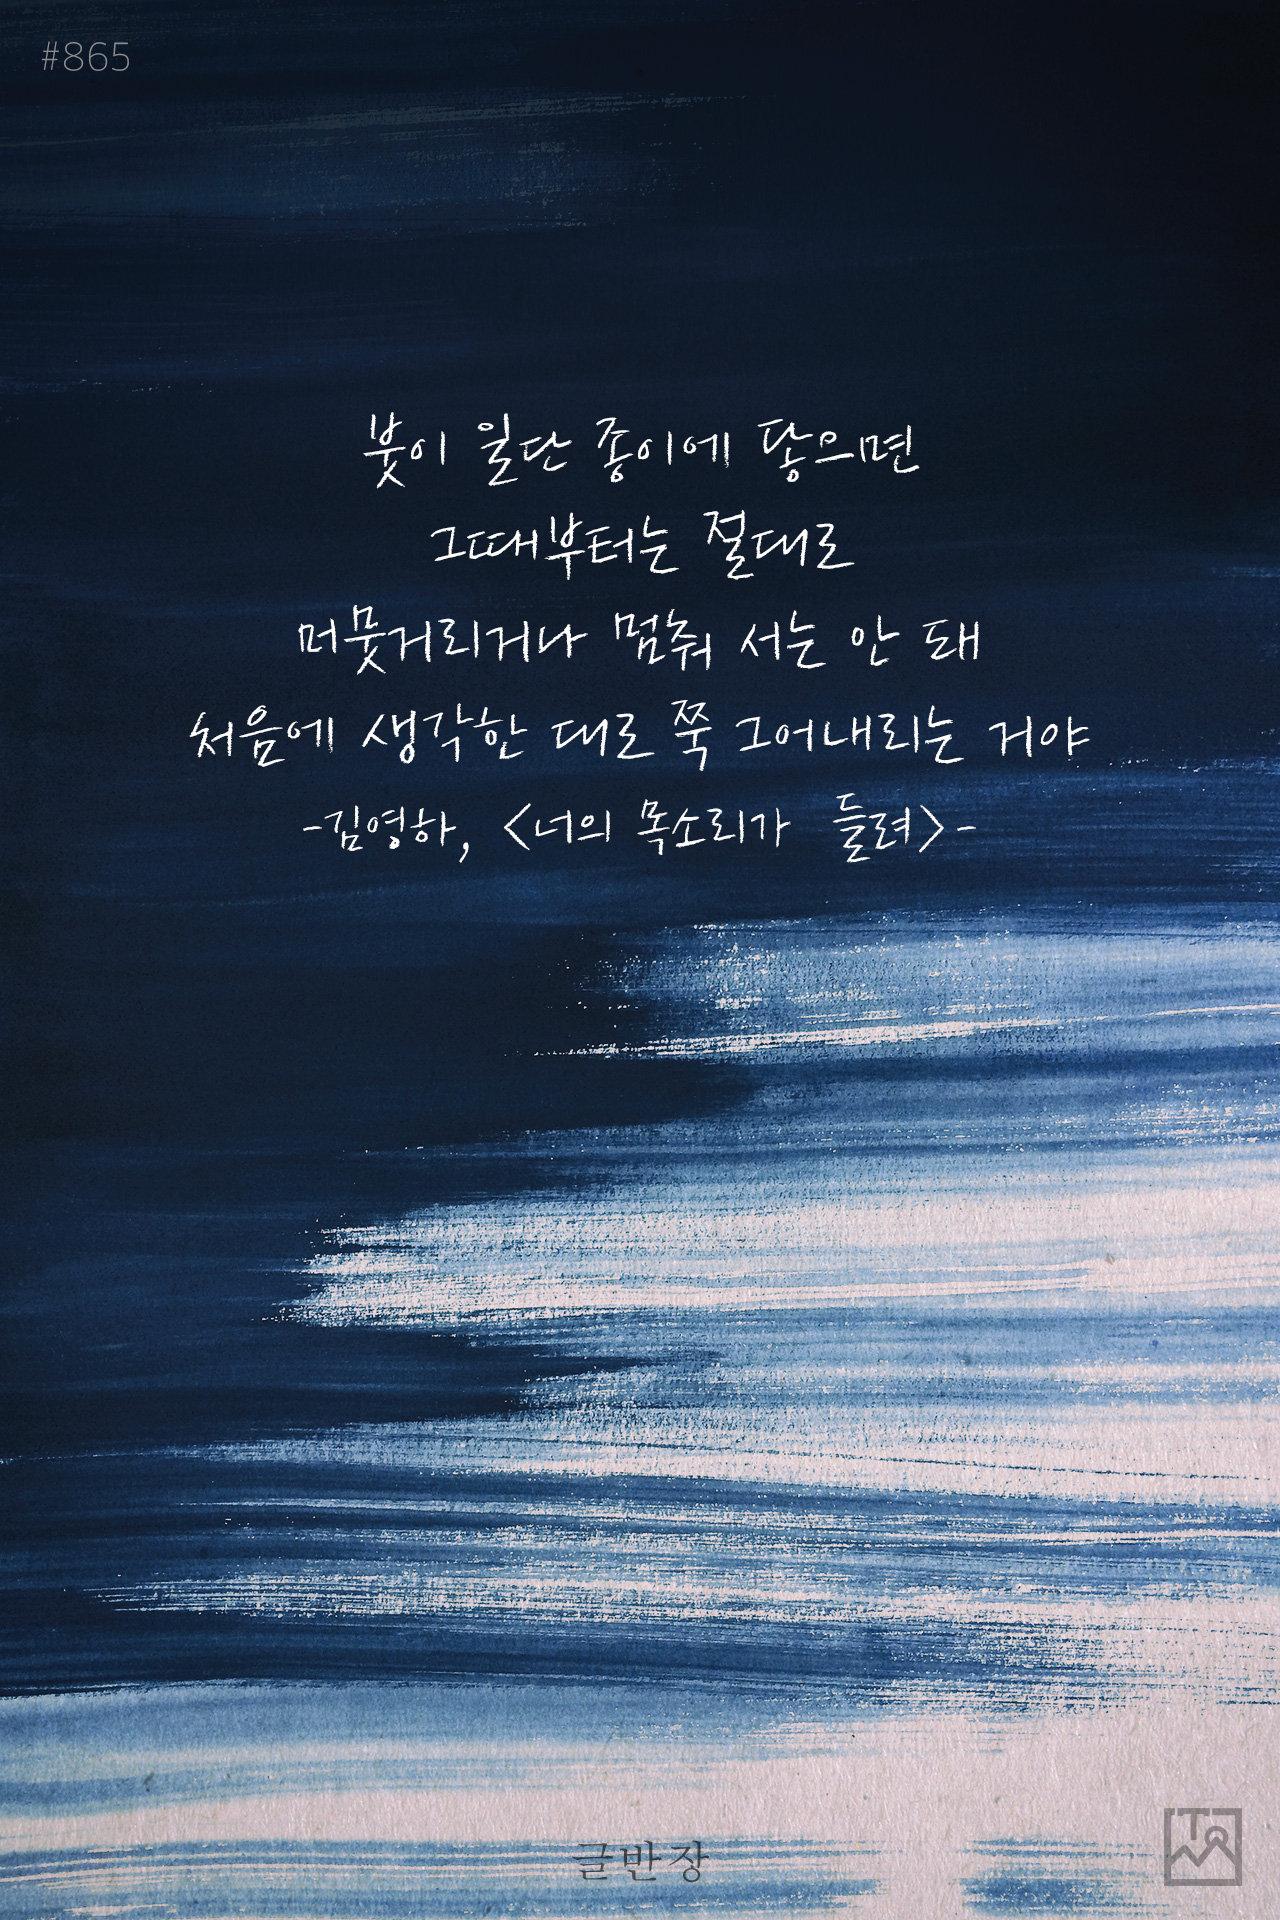 #865
붓이 일단 종이에 닿으면
그때부터는 절대로
머뭇거리거나 멈춰 서는 안 돼
처음에 생각한 대로 쭉 그어내리는 거야
-김영하, <너의 목소리가 들려>-
글반장